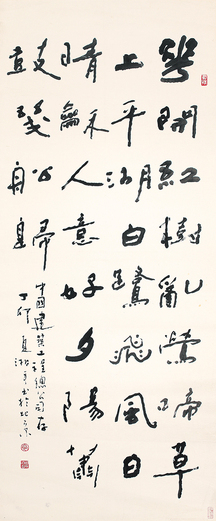 華開紅樹亂鶯啼草
上平湖白鷺飛風日
晴龢人意好夕陽簫
鼓幾船歸
中國建築工程總公司存
丁卯夏湘平書於北京